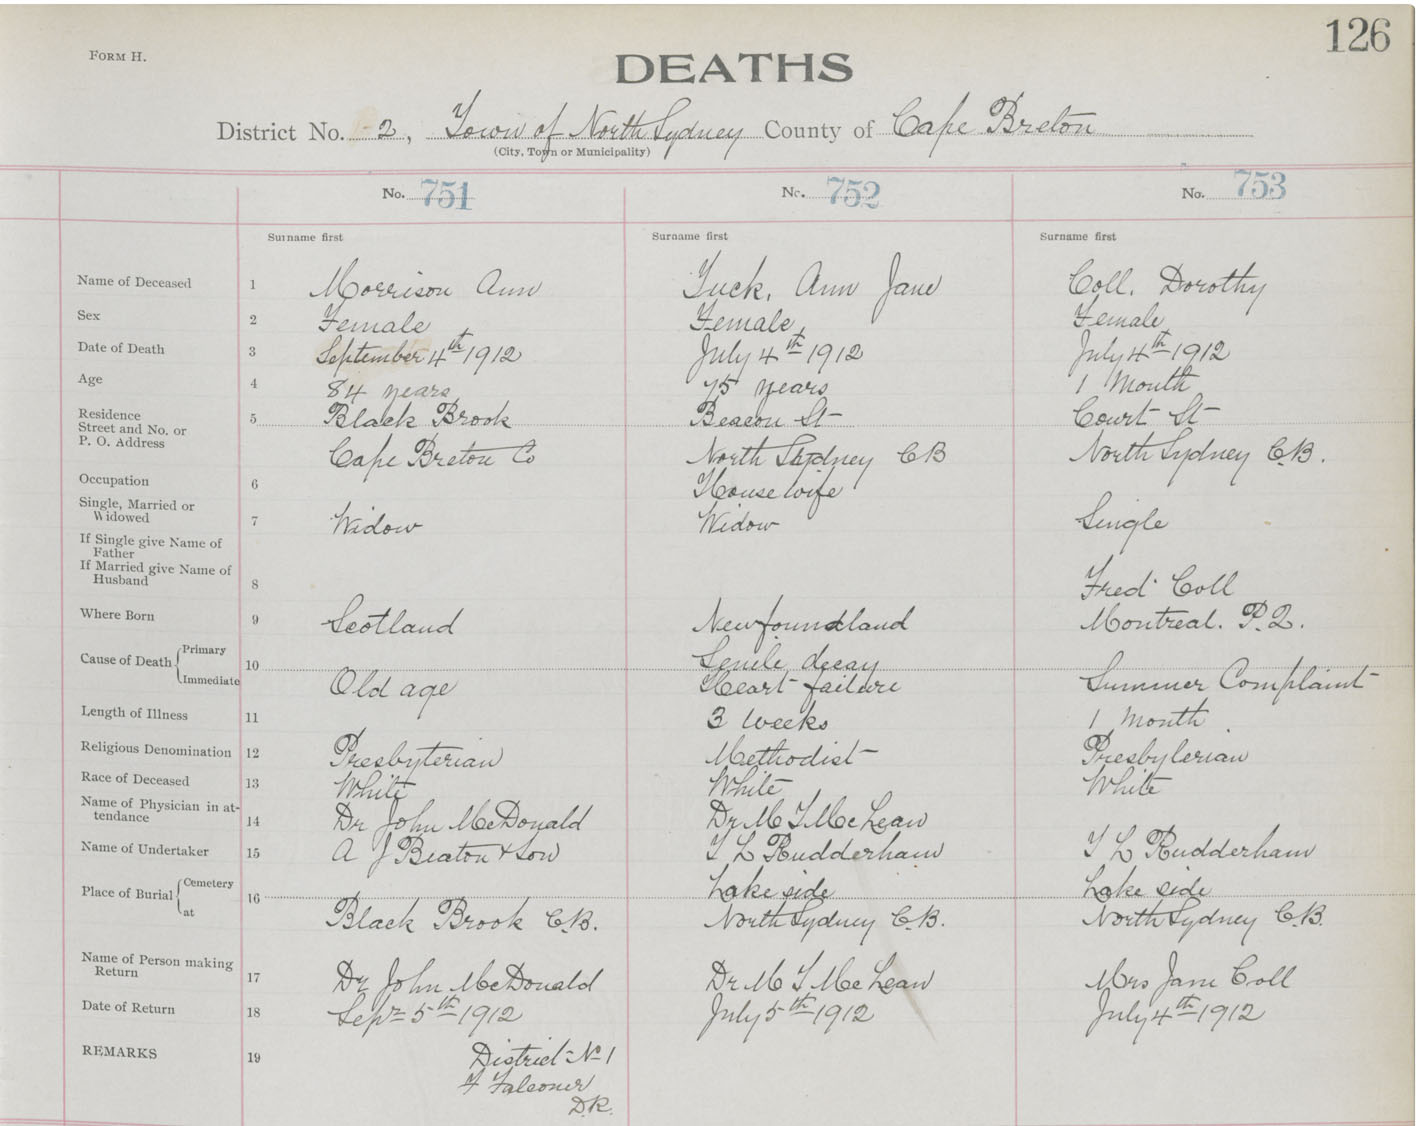 126
FORM H.
DEATHS
District No. 2, Town of North Sydney County of Cape Breton
(City, Town or Municipality)
No. 751 No. 752 No. 753
Surname first Surname first Surname first
Name of Deceased 1 Morrison Ann Tuck, Ann Jane Coll. Dorothy
Sex 2 Female Female Female
Date of Death 3 September 4th 1912 July 4th 1912 July 4th 1912
Age 4 84 years 75 years 1 Month
Residence
Street and No. or 5 Black Brook Beacon St Court St
P. O. Address Cape Breton Co North Sydney C B North Sydney C.B.
Occupation 6 House wife
Single, Married or
Widowed 7 Widow Widow Single
If Single give Name of
Father
If Married give Name of
Husband 8 Fred Coll
Where Born 9 Scotland Newfoundland Montreal. P.Q.
Primary Senile decay
Cause of Death 10
Immediate Old age Heart failure Summer Complaint
Length of Illness 11 3 weeks 1 month
Religious Denomination 12 Presbyterian Methodist Presbyterian
Race of Deceased 13 White White White
Name of Physician in at-
tendance 14 Dr John McDonald Dr M T McLean
Name of Undertaker 15 A J Beaton & Son T L Rudderham T L Rudderham
Cemetery Lake side Lake side
Place of Burial 16
at Black Brook C.B. North Sydney C.B. North Sydney C.B.
Name of Person making
Return 17 Dr John McDonald Dr M T McLean Mrs Jane Coll
Date of Return 18 Sepr 5th 1912 July 5th 1912 July 4th 1912
REMARKS 19 District No 1
F Falconer
D.R.